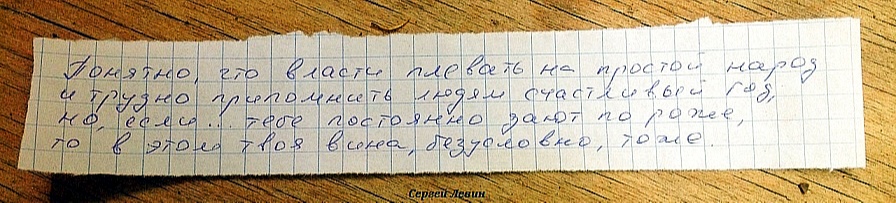 Понятно, что власти плевать на простой народ
и трудно припомнить людям счастливый год,
но, если... тебе постоянно дают по роже,
то в этом твоя вина, безусловно, тоже.
Сергей Левин